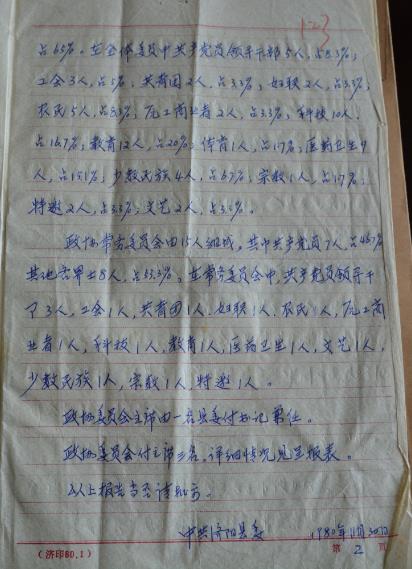 123
占65%。在全体委员中共产党员领导干部5人,占8.3%;
工会3人,占5%;共青团2人,占3.3%;妇联2人,占3.3%;
农民5人,占8.3%;原工商业者2人,占3.3%;科技10人,
占16.7%;教育12人,占20%;体育1人,占1.7%;医药卫生9
人,占15.1%;少数民族4人,占6.7%;宗教1人,占1.7%;
特邀2人,占3.3%;文艺2人,占3.3%。
政协常务委员会由15人组成,其中共产党员7人,占46.7%
其他各界士8人,占53.3%。在常务委员会中,共产党员领导干
部3人,工会1人,共青团1人,妇联1人,农民1人,原工商
业者1人,科技1人,教育1人,医药卫生1人,文艺1人,
少数民族1人,宗教1人,特邀1人。
政协委员会主席由一名县委付书记兼任。
政协委员会付主席三名,详细情况见呈报表。
以上报告当否请批示。
中共济阳县委 1980年11月30日
(济印80.1) 第 2 页